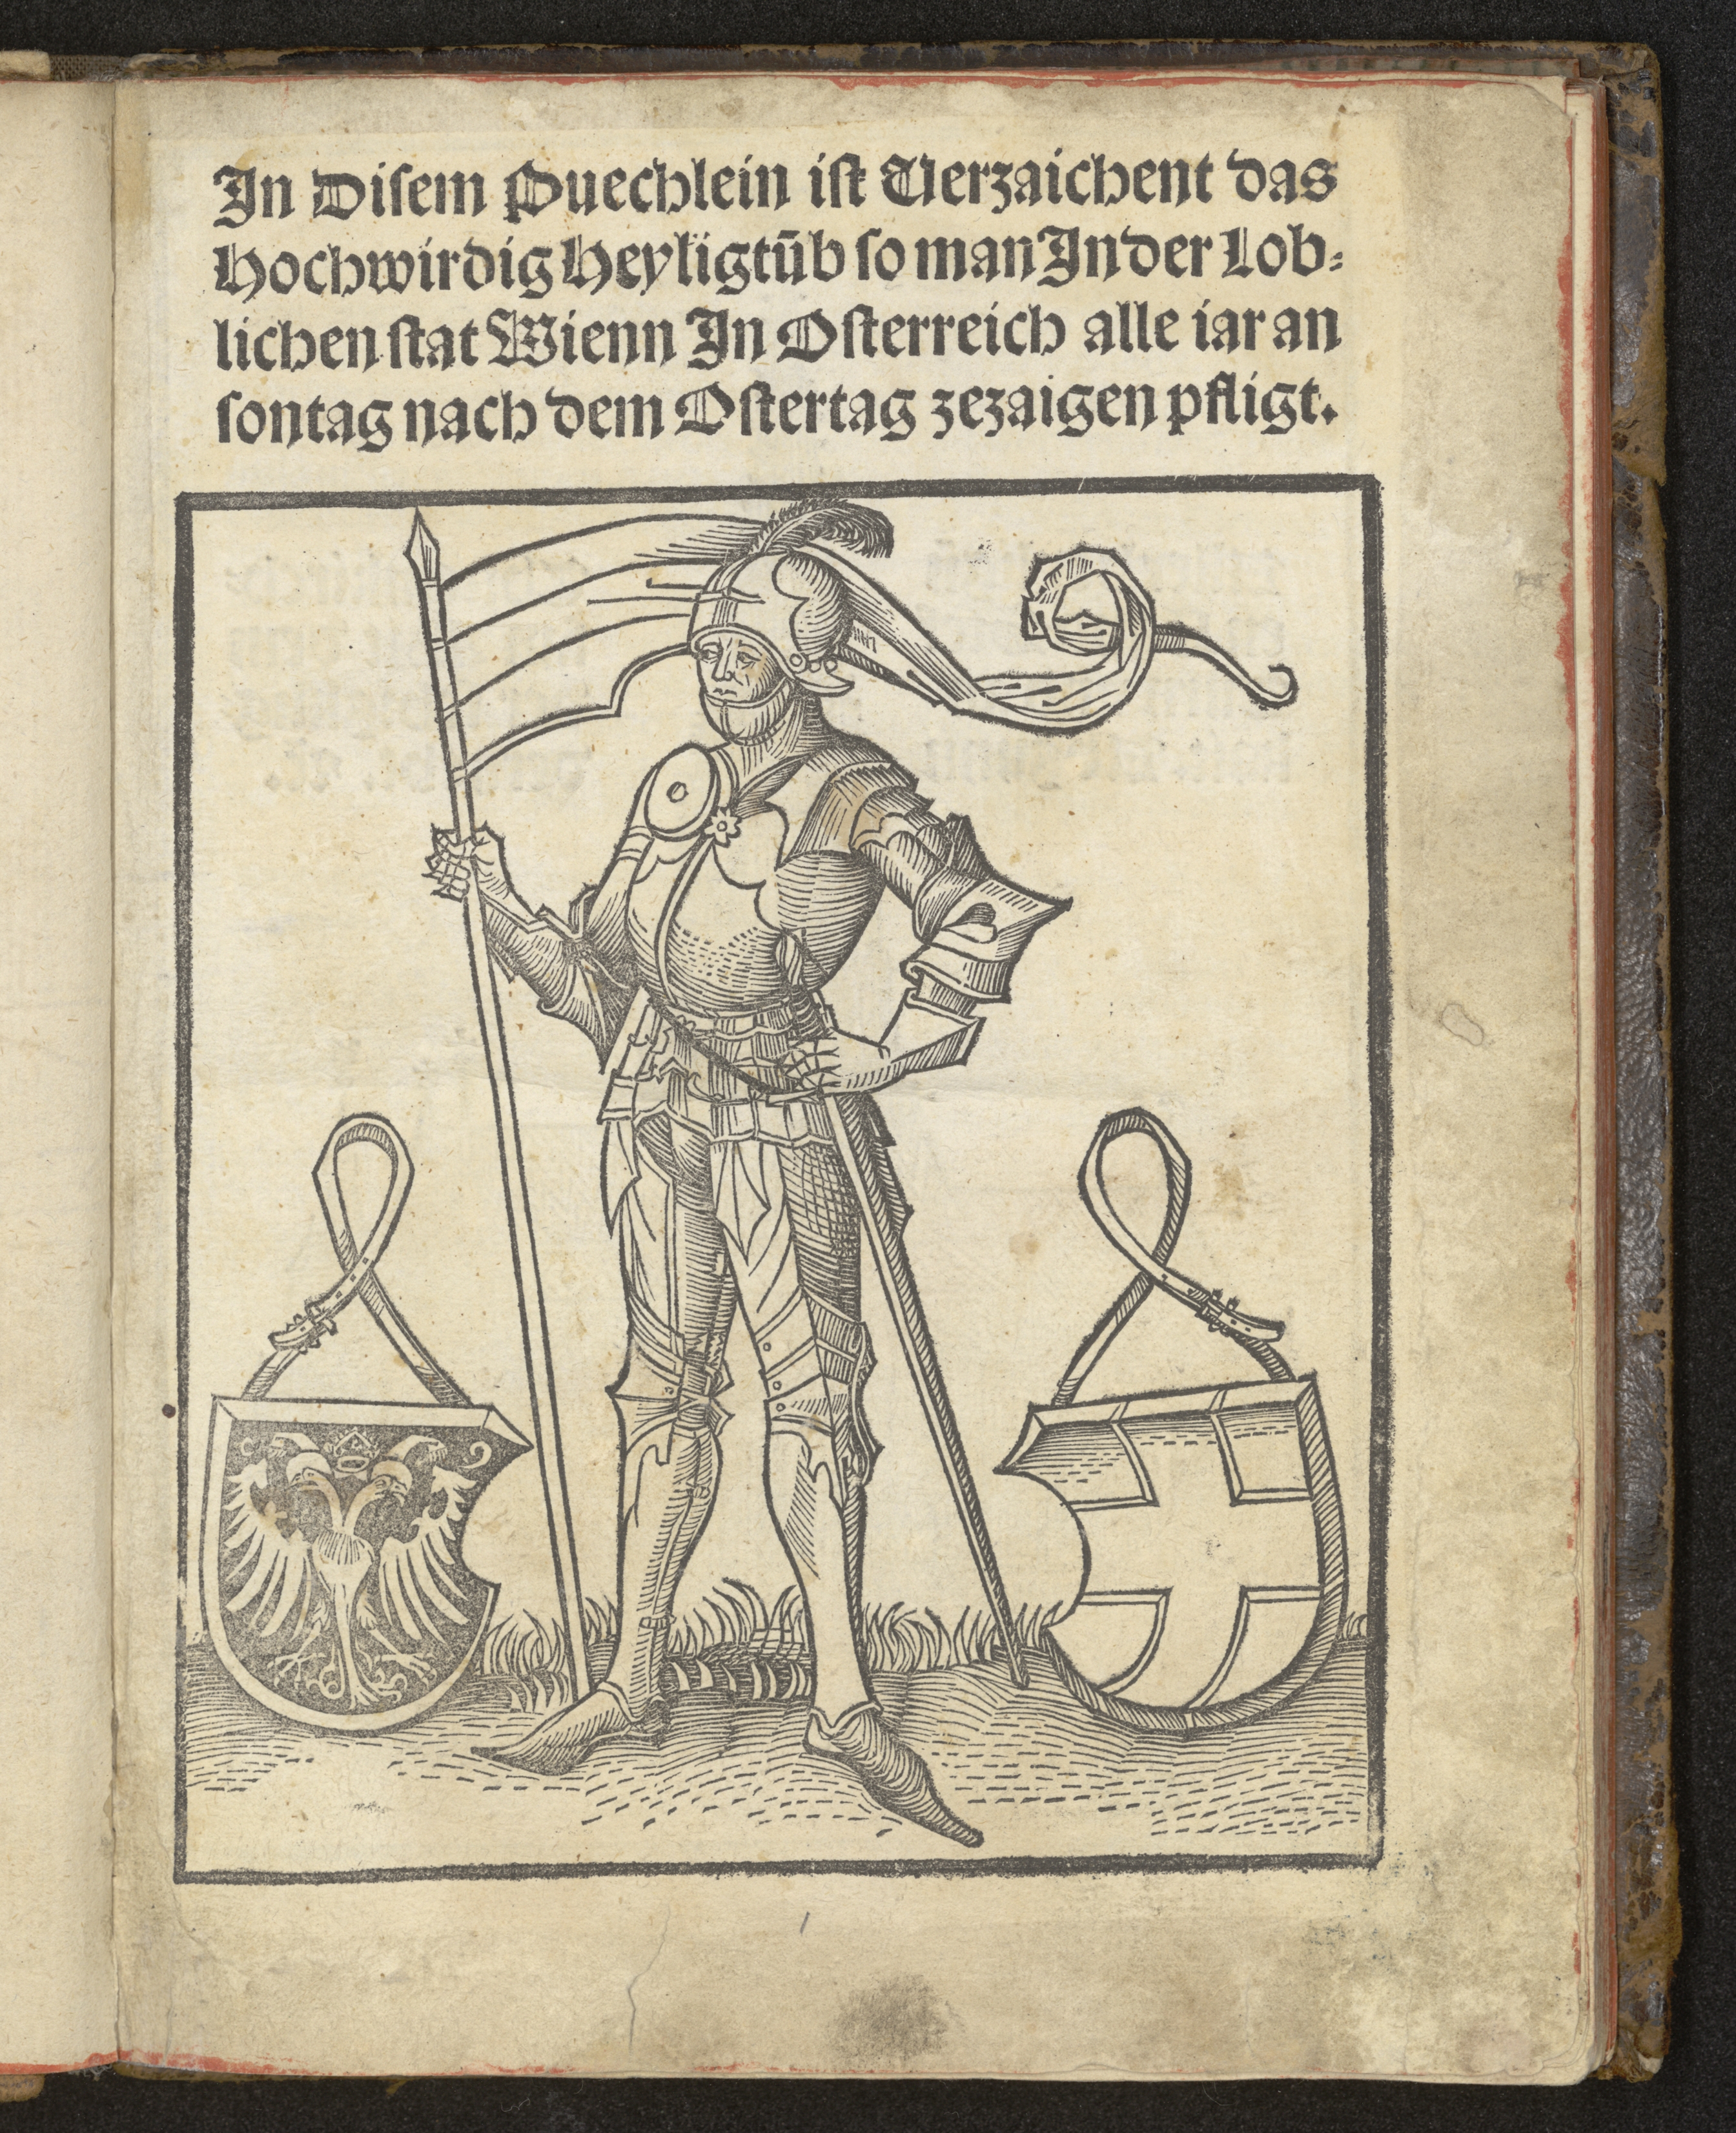 In Disem Puechlein ist Verzaichent das
Hochwirdig Heyligtūb so man In der Lob⸗
lichen stat Wienn In Osterreich alle iar an
sontag nach dem Ostertag zezaigen pfligt.